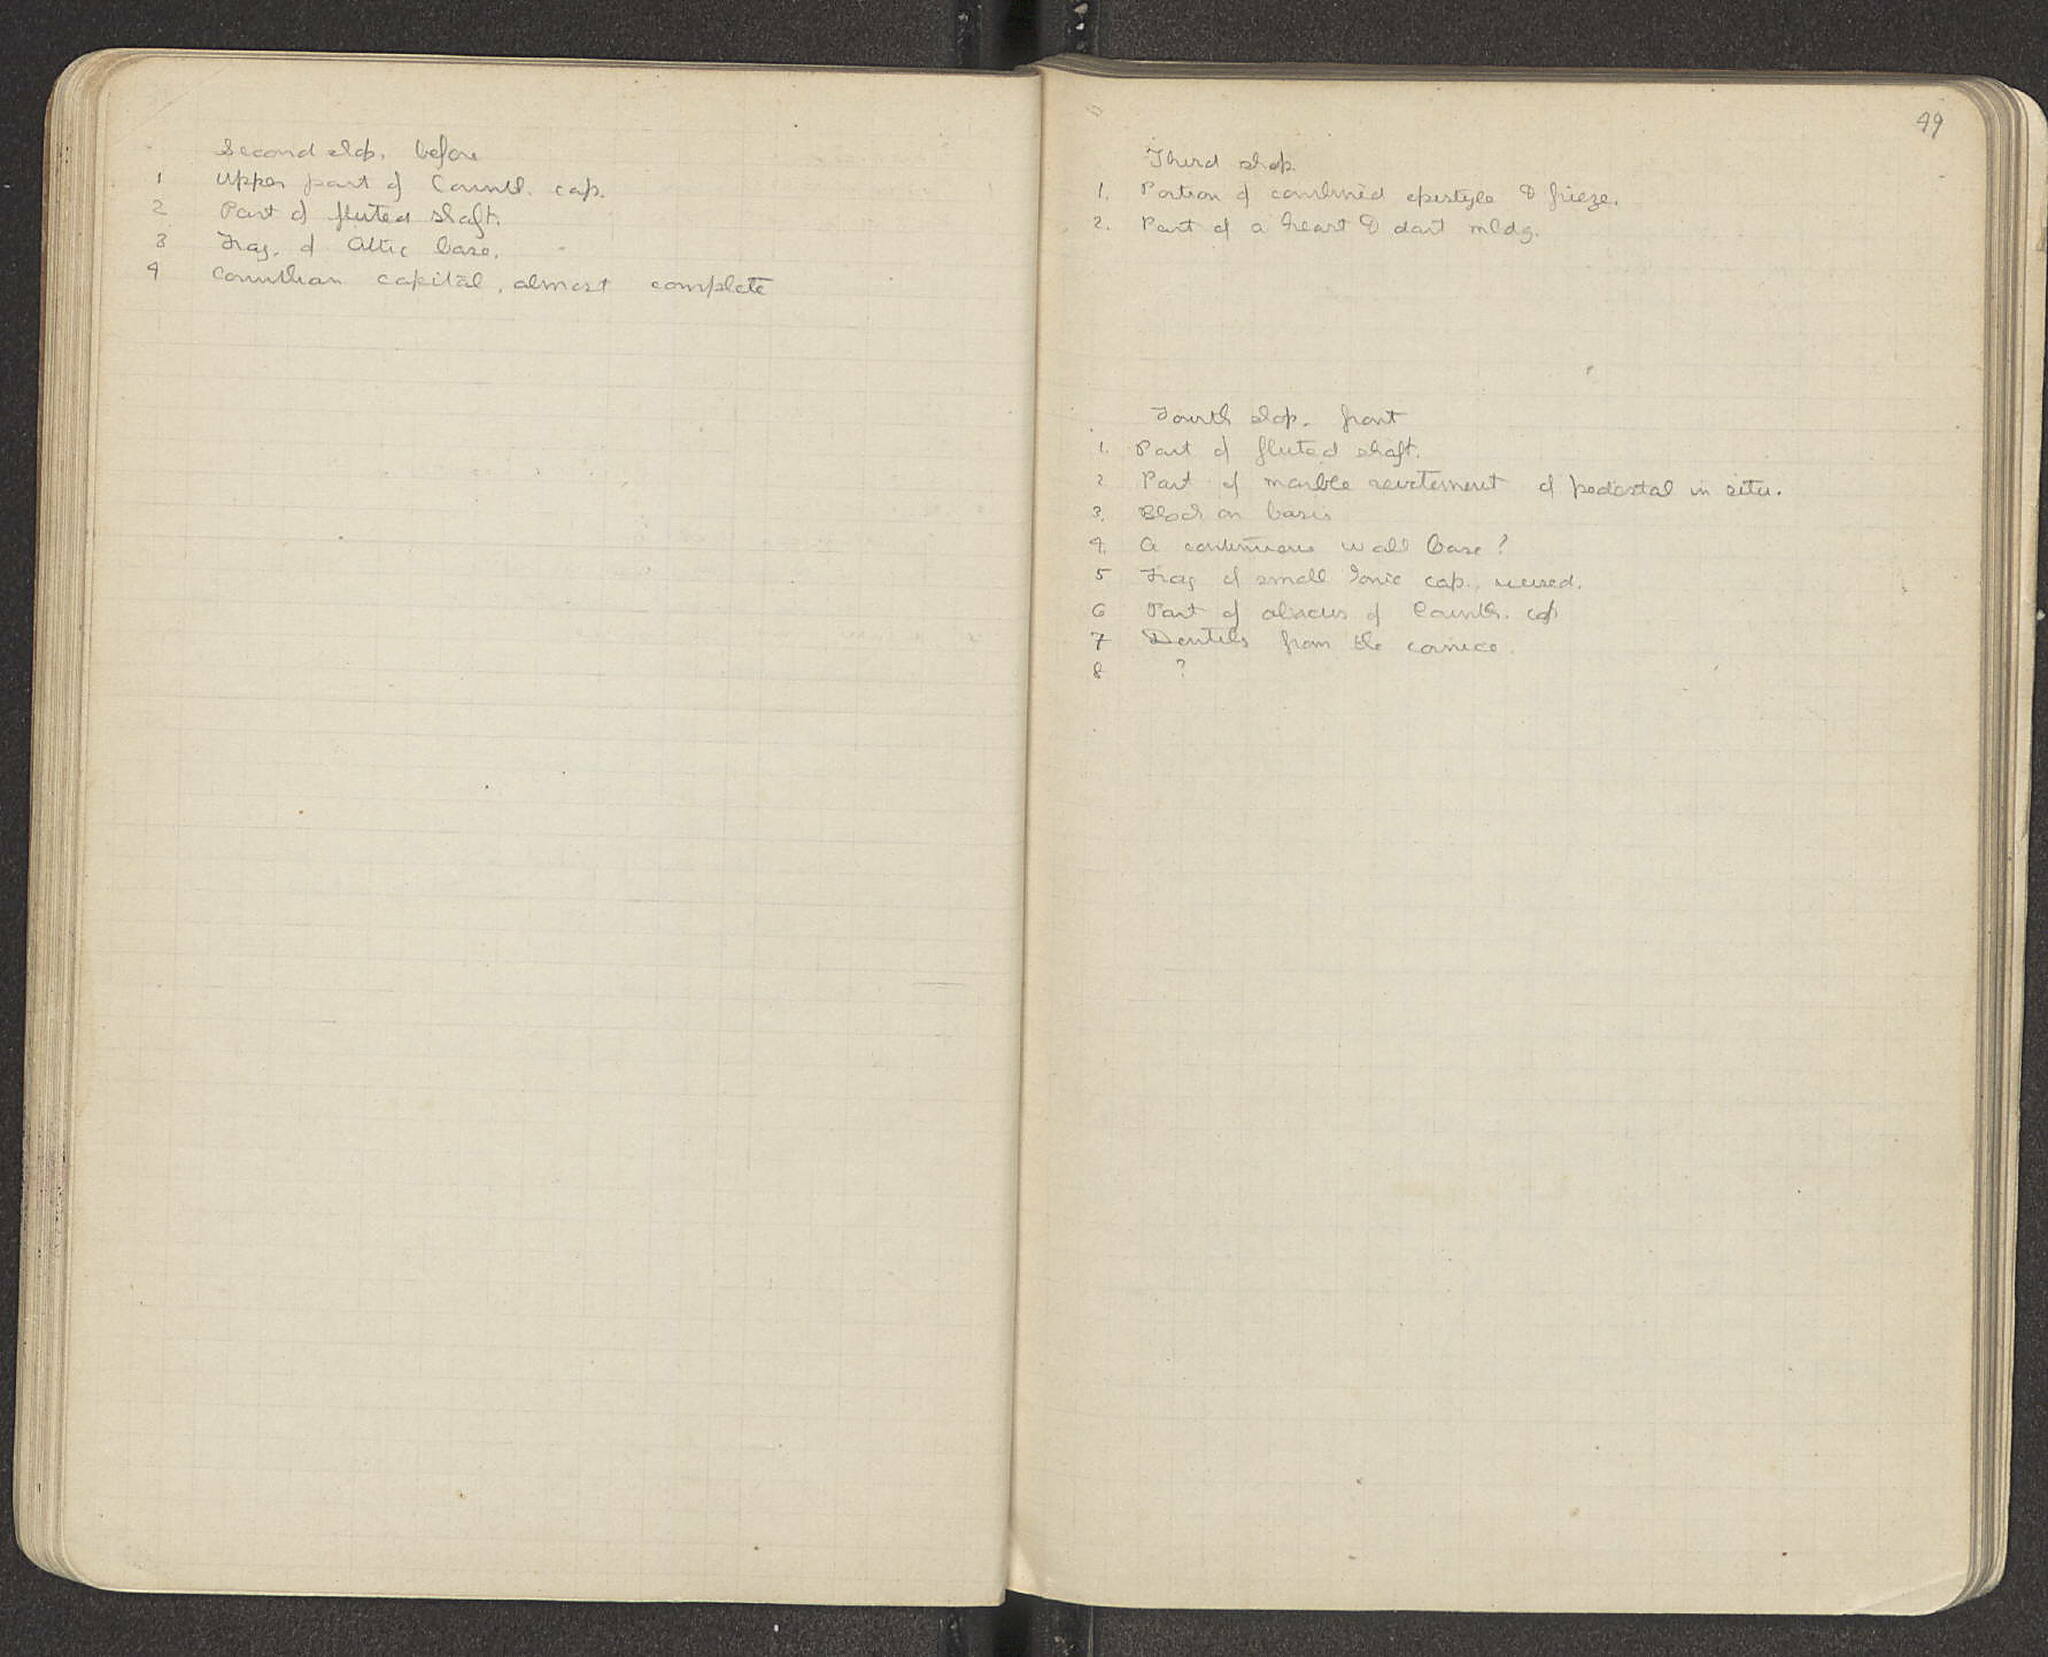 Second shop. before
1 Upper part of Corinth. cap.
2 Part of fluted shaft.
3 Frag. of Attic base.
4 Corinthian capital, almost complete
49
Third shop.
1. Portion of combined epistyle & frieze.
2. Part of a heart & dart mldg.
Fourth shop. front
1. Part of fluted shaft.
2 Part of marble revetement of pedestal in situ.
3. Block on basis
4. A continuous wall base?
5 Frag of small Ionic cap., reused.
6 Part of abacus of Corinth. cap
7 Dentils from the cornice.
8 ?